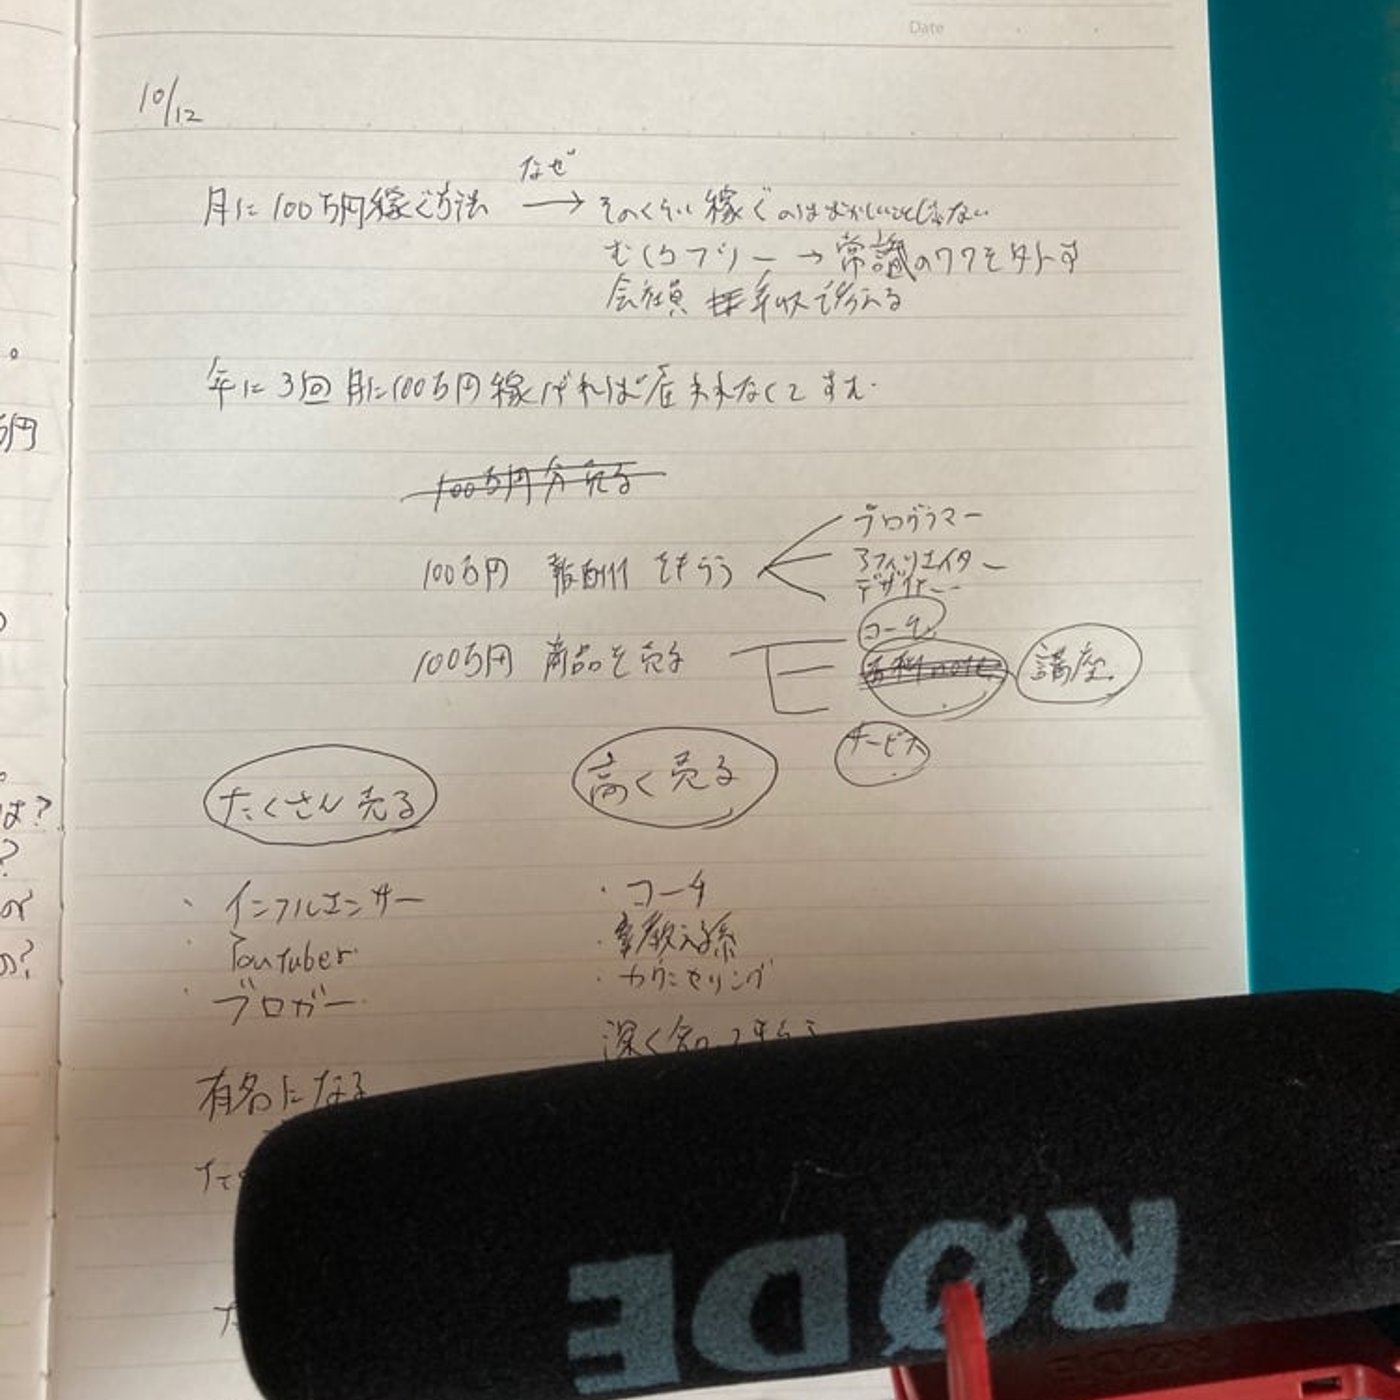 Date
10/12
なぜ
月に100万円稼ぐ方法 → そのくらい稼ぐのはおかしいことじゃない
むくらフリー → 常識のワクを外す
会社員 年収で考える
年に3回 月に100万円稼げれば雇われなくてすむ.
100万円分売る
100万円 報酬をもらう
プログラマー
アフィリエイター
デザイナー
100万円 商品を売る
コーチ
有料note
講座
サービス
たくさん売る
高く売る
・インフルエンサー
・Youtuber
・ブロガー
・コーチ
・教える系
・カウンセリング
深く知ってもらう
有名になる
た
万円
は?
?
の?
RØDE
RØDE